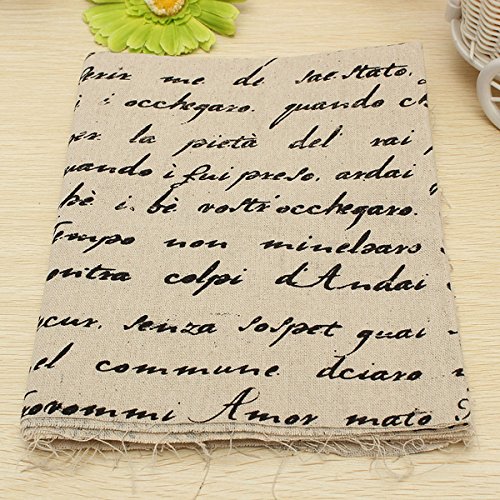 gerir me di saestato.
i occhegaro. quando ch
per la pietà del rai
uando i fui preso. ardai
hè i. bè vostriocchegaro.
Tempo non minelsaro
ontra colpi d'Andai
cur. senza sospet quai
el commune dciaro
rorommi Amor mato